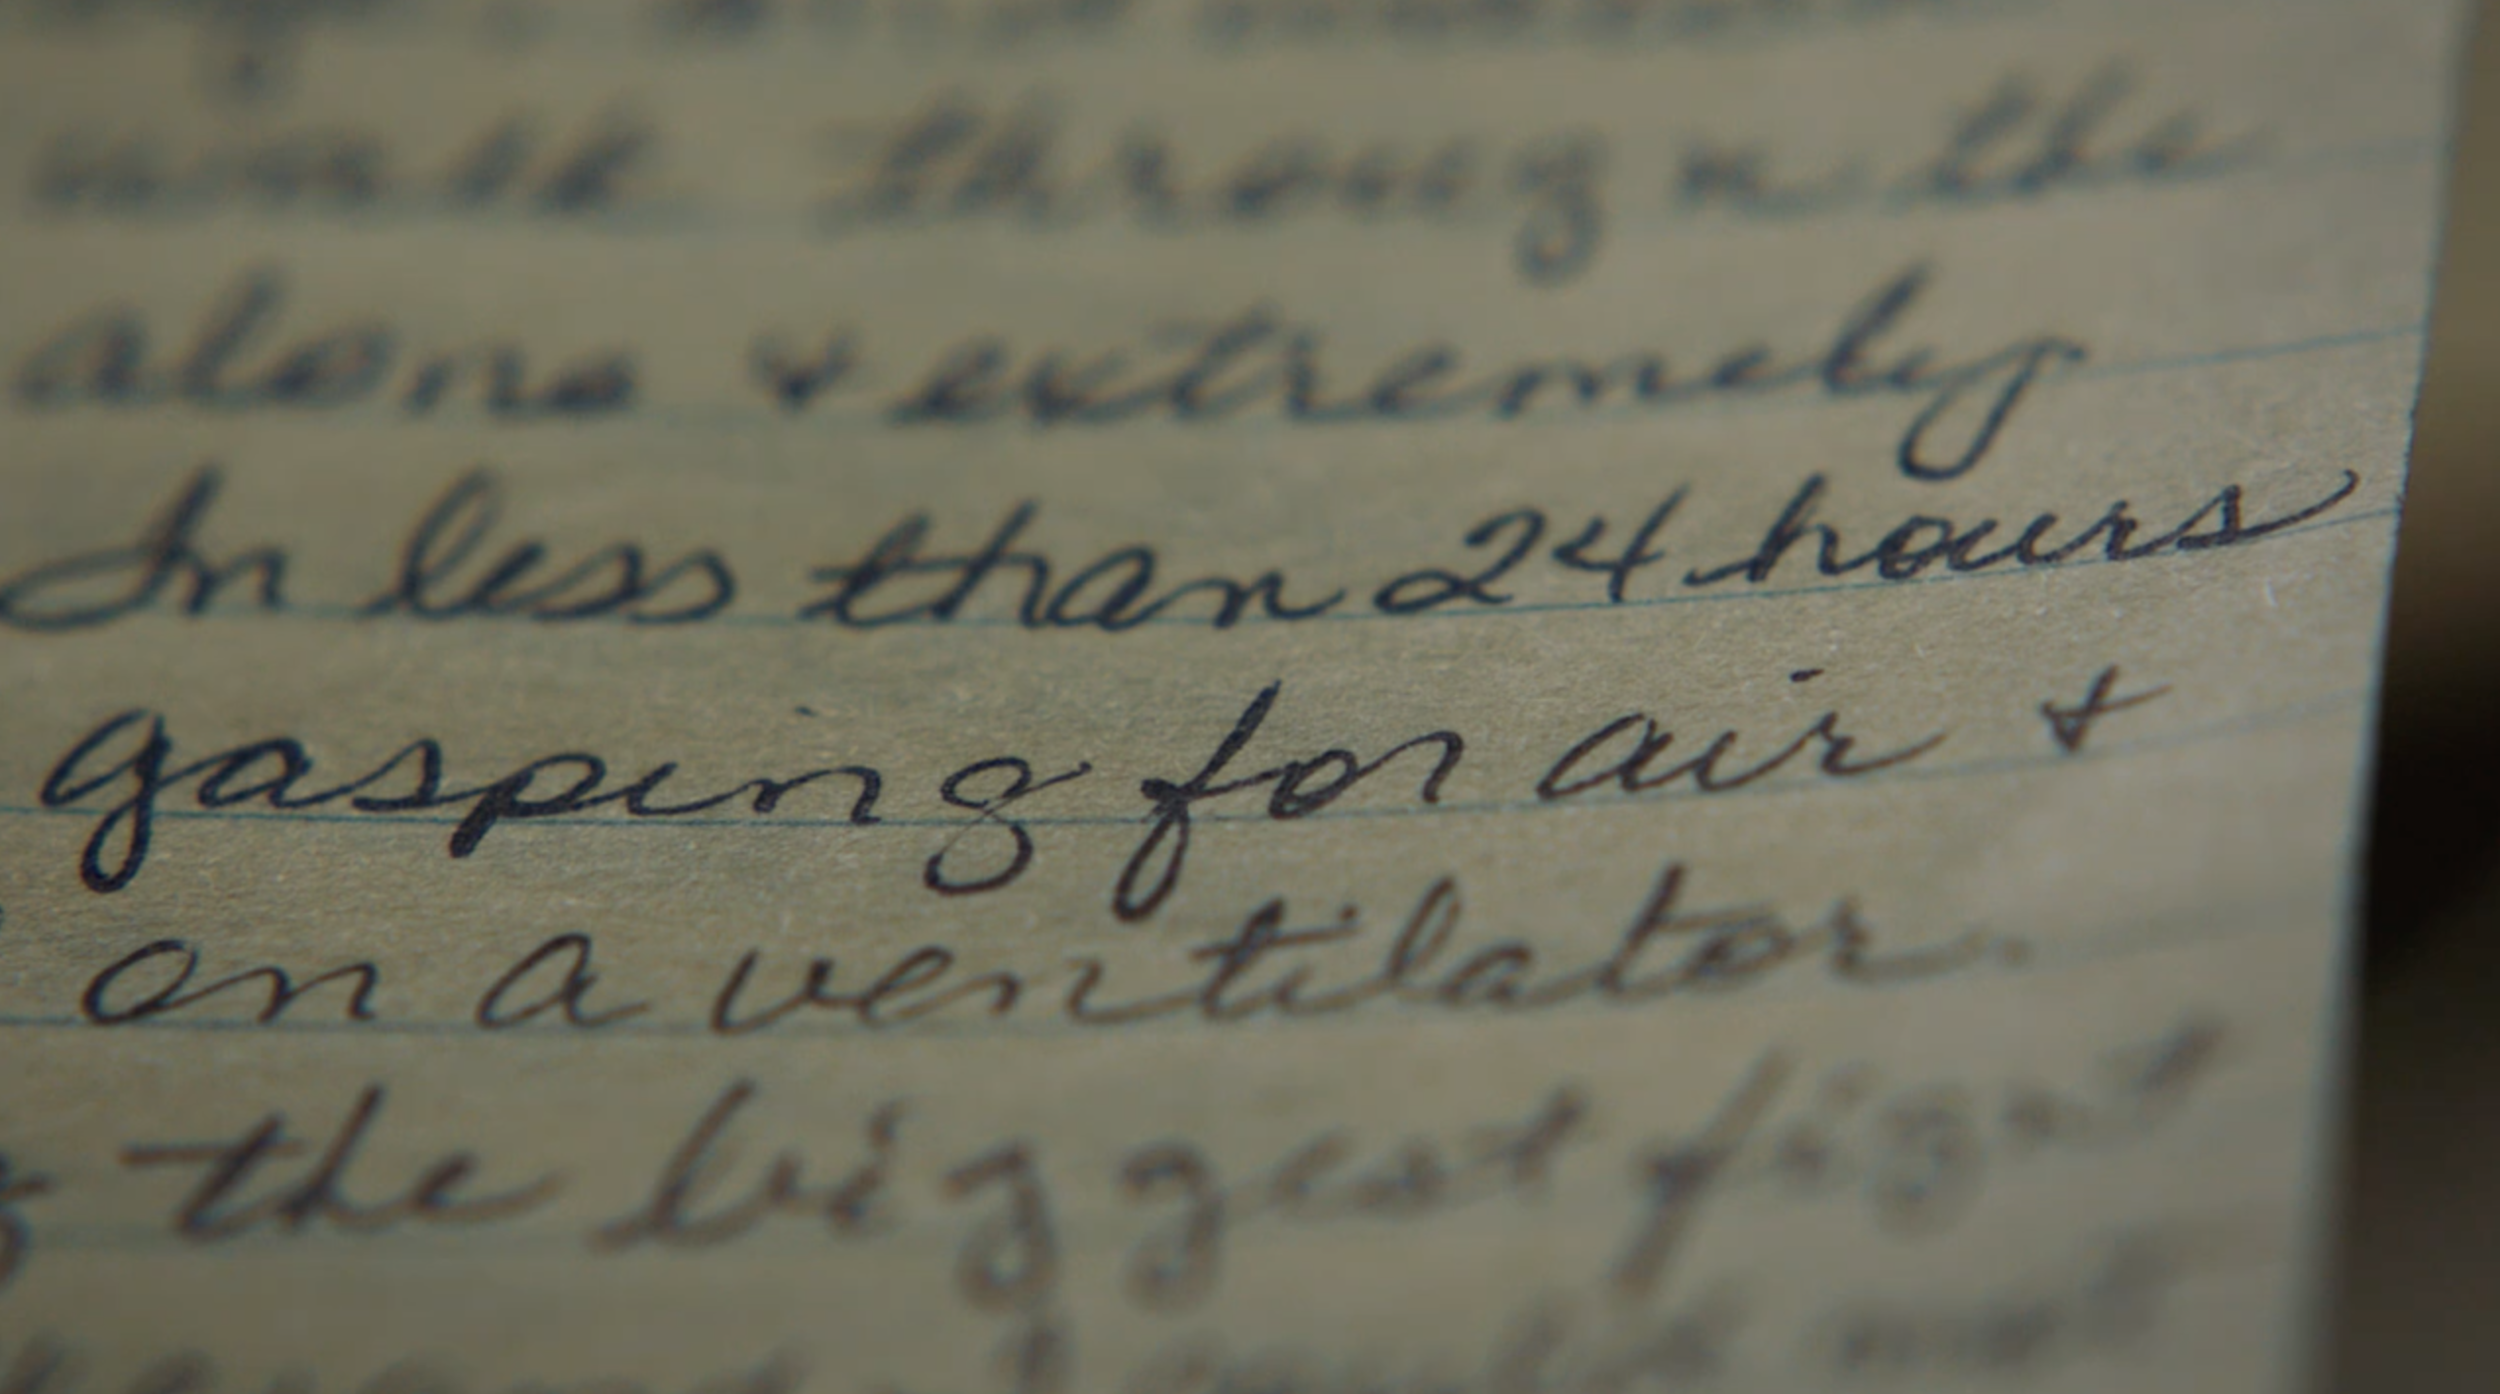 walk through the
alone & extremely
In less than 24 hours
gasping for air &
on a ventilator.
the biggest fight